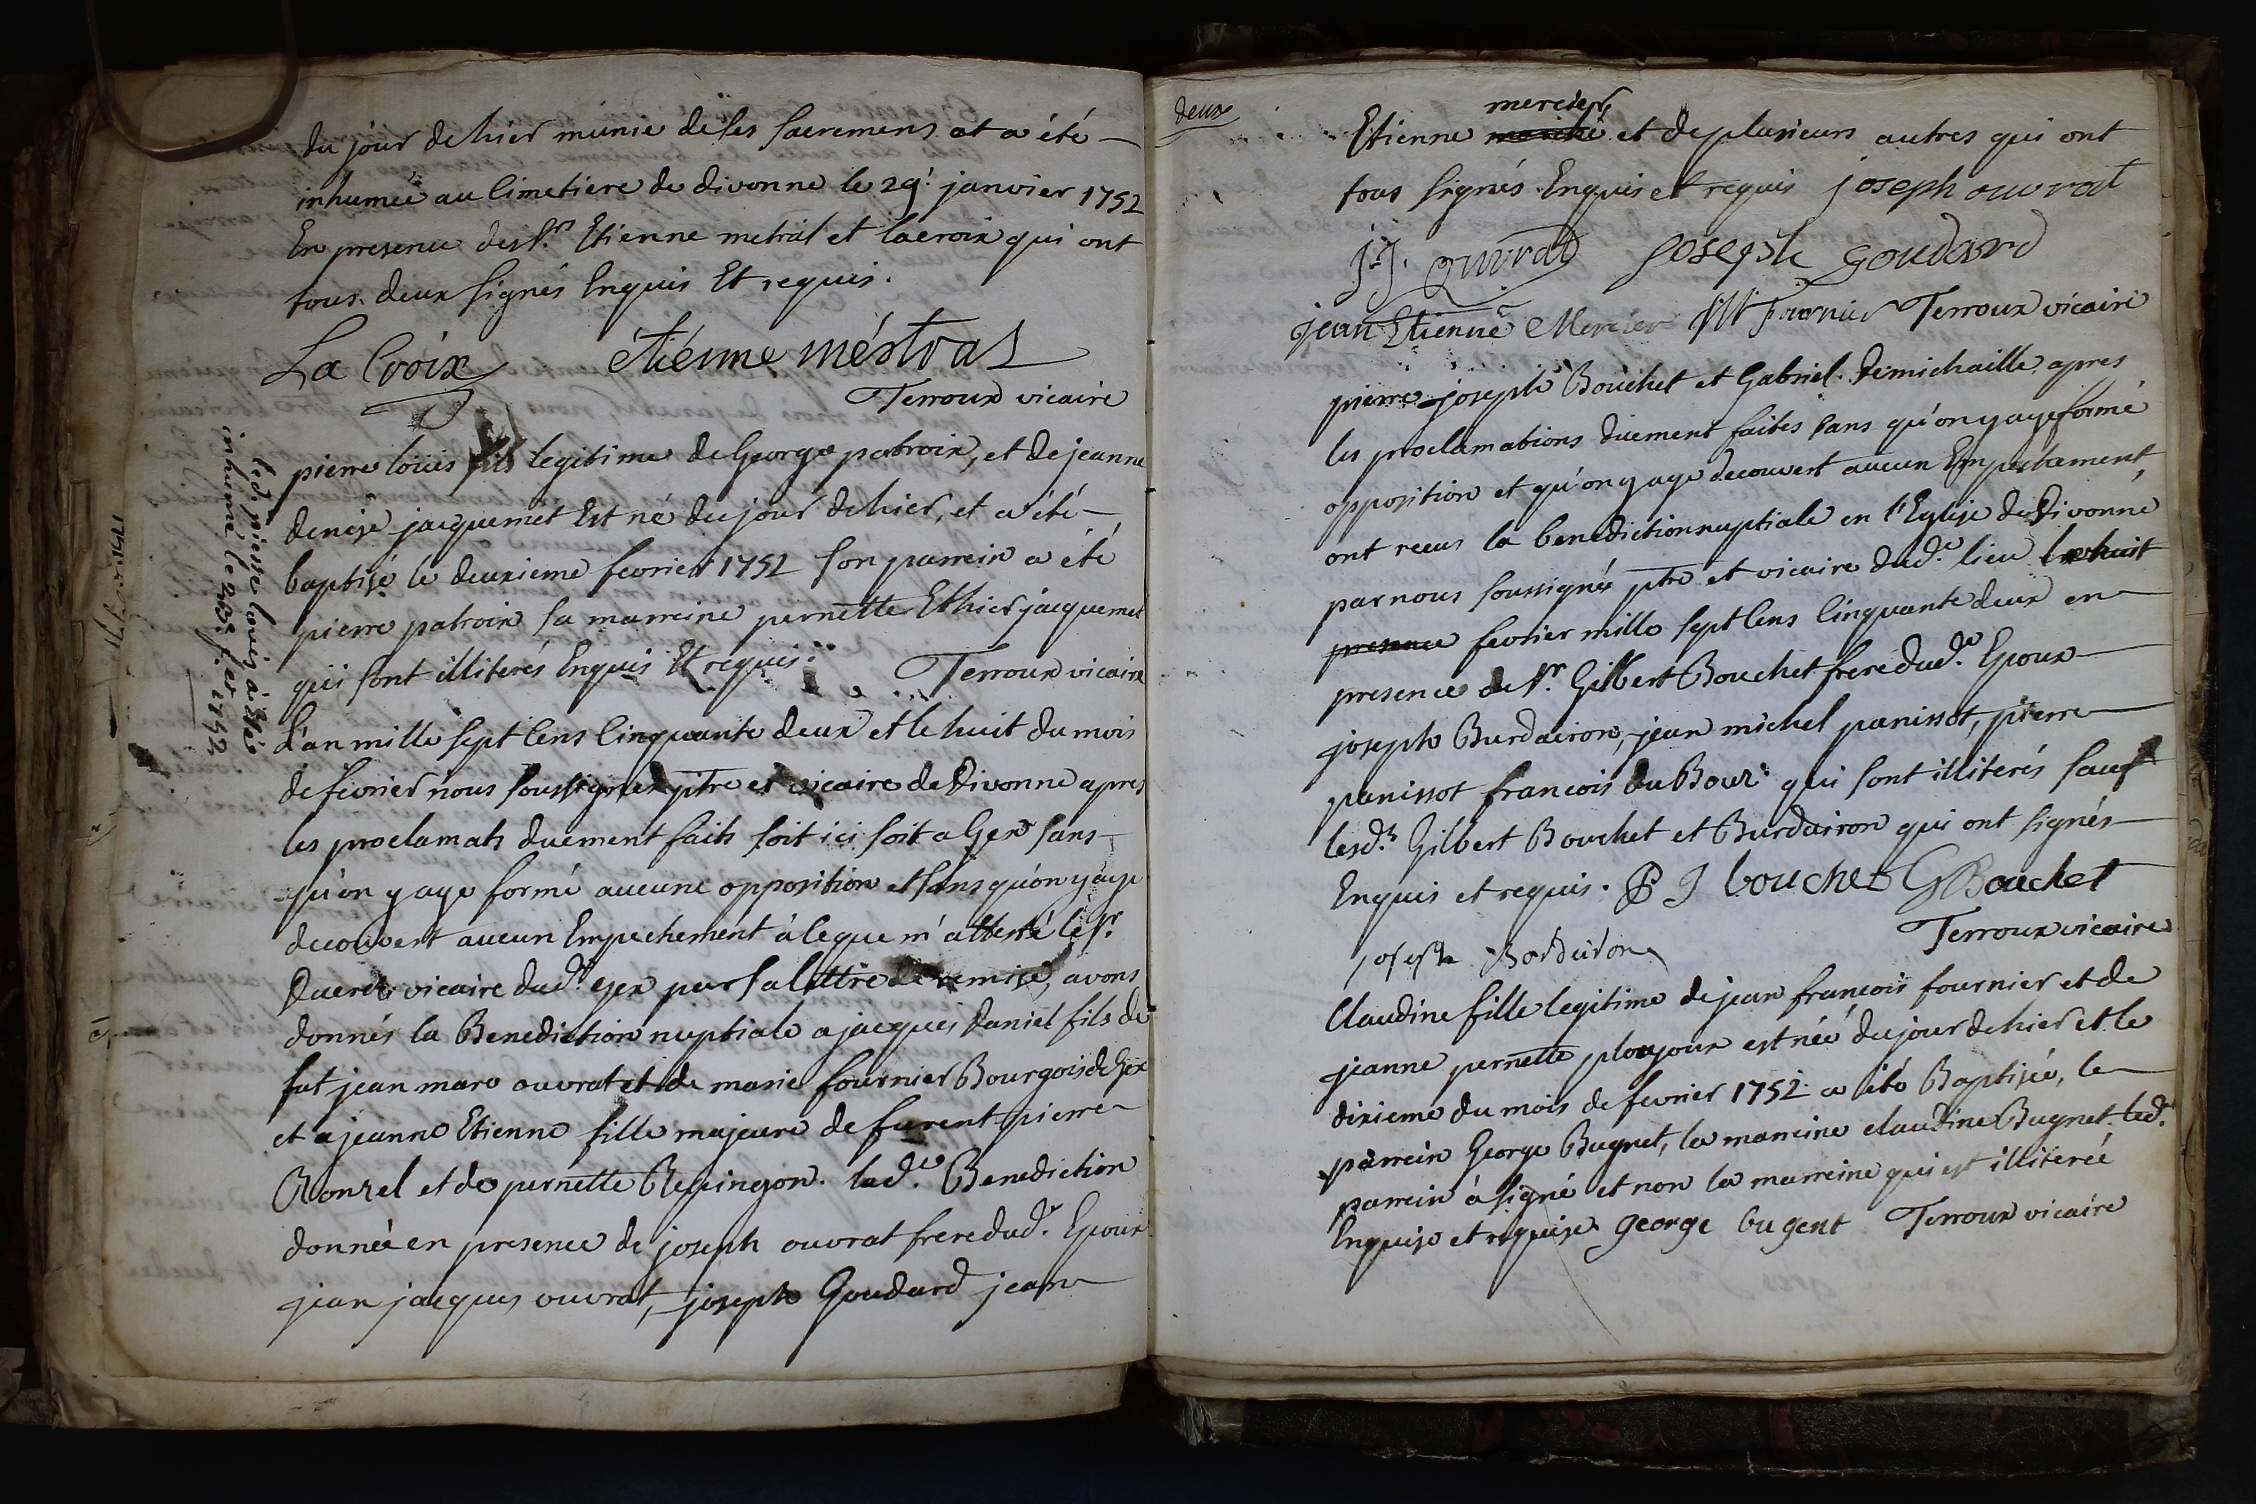 du jour de hier munie de ses sacremens et a été
inhumée au cimetiere de divonne le 29e janvier 1752
En presence des srs Etienne metral et lacroix qui ont
tous deux signés Enquis Et requis.
La Croix étiénne méstral
Terroux vicaire
pierre loüis fils legitime de George patroix, et de jeanne
denise jacquemet Est né du jour de hier, et a été
baptisé le deuxieme fevrier 1752 son parrein a été
pierre patroix sa marreine pernette Ethier jacquemet
qui sont illiterés Enquis Et requis.
Terroux vicaire
led. pierre louis a été
inhumé le 23e fer 1752
L'an mille sept Cens Cinquante deux et le huit du mois
de fevrier nous soussigné ptre et vicaire de Divonne apres
les proclamats duement faits soit ici soit a Gex sans
qu'on y aye formé aucune opposition et sans qu'on y aye
decouvert aucun Empechement à ce que m'atteste le sr.
Ducret vicaire dud. gex par sa lettre de remise, avons
donnés la Benediction nuptiale a jacques Daniel fils de
fut jean marc ouvrat et de marie fournier Bourgois de Gex
et a jeanne Etienne fille majeure de furent pierre
Ronzel et de pernette Repingon. lad.e Benediction
donnée en presence de joseph ouvrat frere dud. Epoux
jean jacques ouvrat, joseph Goudard jean
deux
mercier
Etienne et de plusieurs autres qui ont
tous signés Enquis et requis joseph ouvrat
J.J. ouvrat joseph goudard
jean Etienne Mercier fournier Terroux vicaire
pierre joseph Bouchet et Gabriel Demichaille apres
les proclamations duement faites sans qu'on y aye formé
opposition et qu'on y aye decouvert aucun Empechament,
ont recus la benediction nuptiale en l'Eglise de Divonne
par nous soussigné ptre et vicaire dud.e lieu le huit
presence fevrier mille sept Cens Cinquante deux en
presence de sr. Gilbert Bouchet frere dud.e Epoux
joseph Burdairon, jean michel panissot, pierre
panissot francois du Bour qui sont illiterés sauf
lesd.ts Gilbert Bouchet et Burdairon qui ont signés
Enquis et requis. P J bouchet G Bouchet
Terroux vicaire
joseph Bordairon
Claudine fille legitime de jean francois fournier et de
jeanne pernette ploujoux est née du jour de hier et le
dixieme du mois de fevrier 1752 a été Baptisée, le
parrein George Bugnet, la marreine claudine Bugnet. led.
parrein a signé et non la marreine qui est illiterée
Enquise et requise george bugent Terroux vicaire